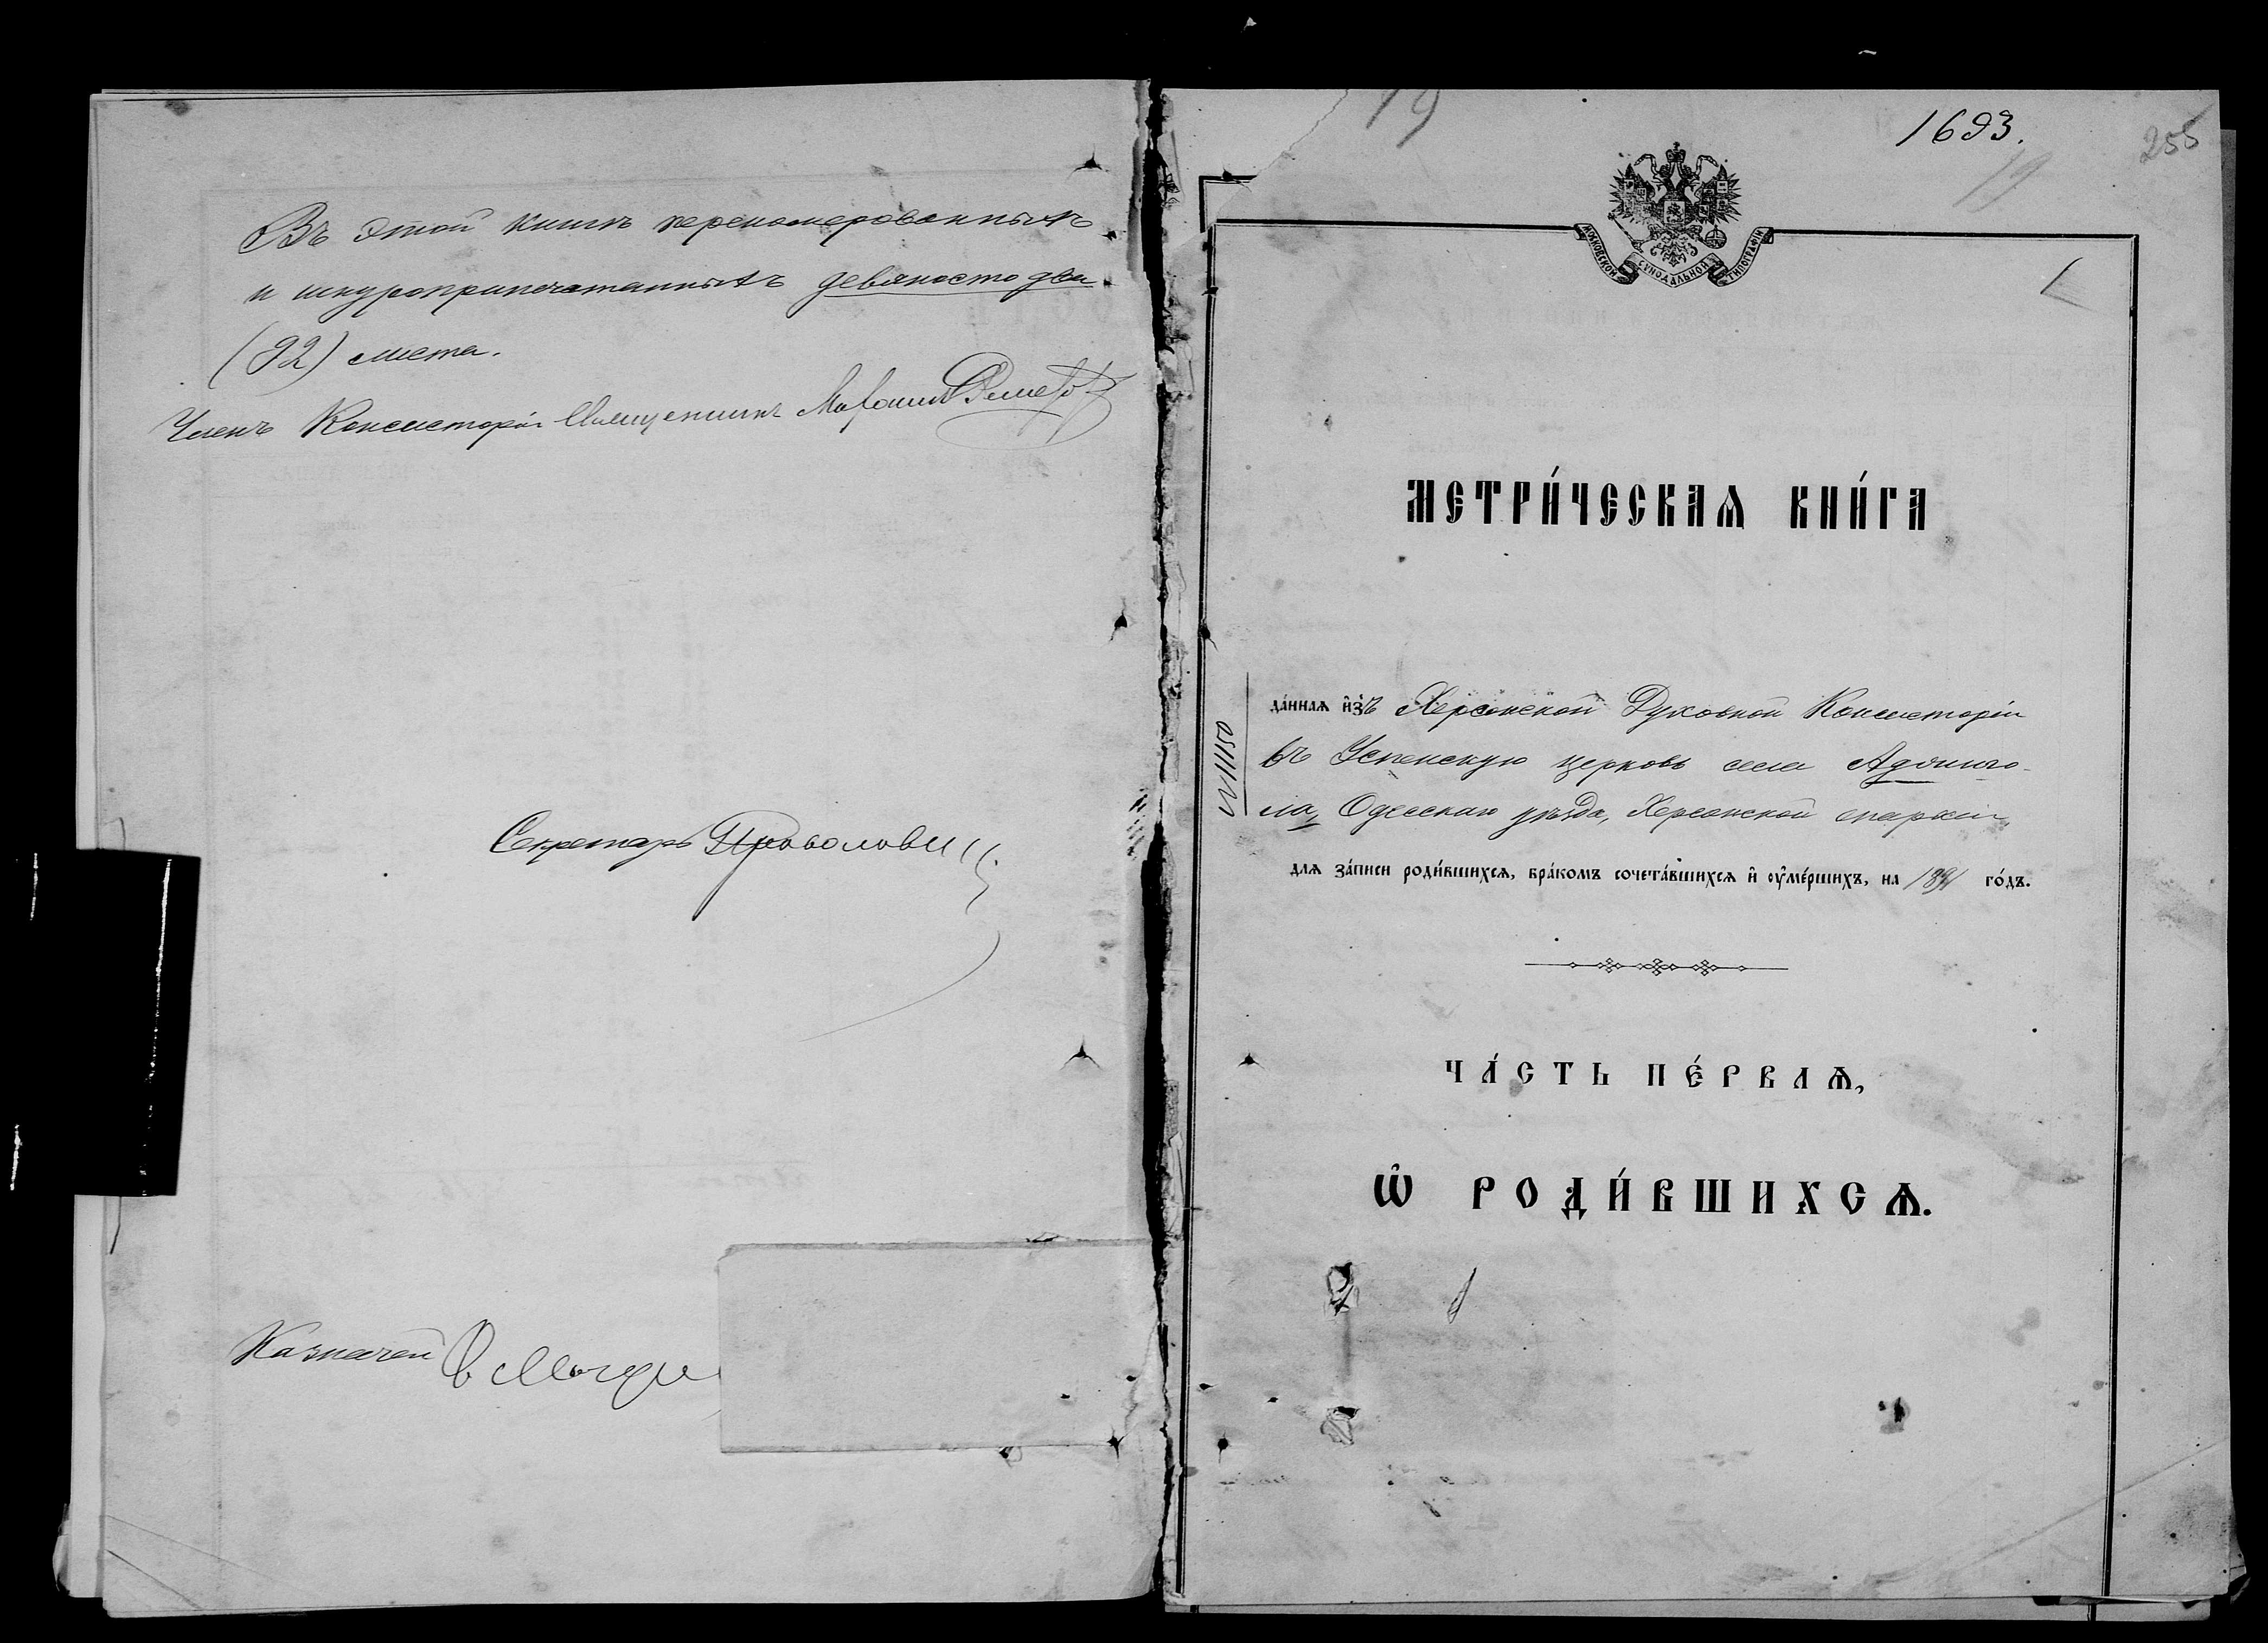 Въ этой книгѣ перенумерованныхъ
и шнуроприпечатанныхъ девяносто два
(92) листа.
Членъ Консисторіи Священникъ
Секретарь
Казначей
19
1693.
255
19
МОСКОВСКОЙ СУНОДАЛЬНОЙ ТИПОГРАФІИ
1
МЕТРИ́ЧЕСКАѦ КНИ́ГА
№ 11150
да́ннаѧ и҆зъ Херсонской Духовной Консисторіи
въ Успенскую церковь села Аджиго-
ла, Одесскаго уѣзда, Херсонской епархіи,
для за́писи роди́вшихсѧ, бра́комъ сочета́вшихсѧ и҆ ᲂу҆ме́ршихъ, на 1891 го́дъ.
ЧА́СТЬ ПЕ́РВАѦ,
Ѡ҆ РОДИ́ВШИХСѦ.